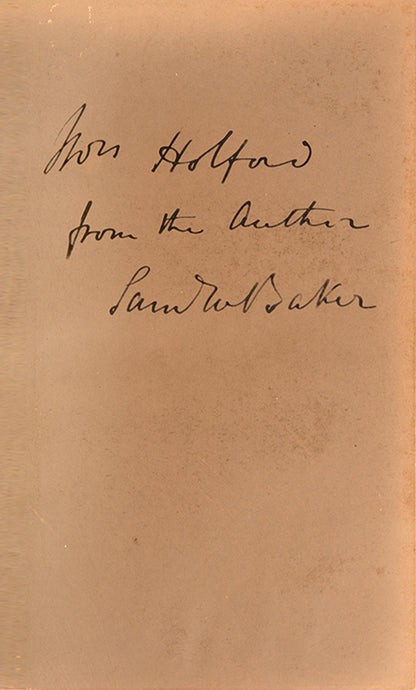 Mrs Holford
from the Author
Saml W Baker